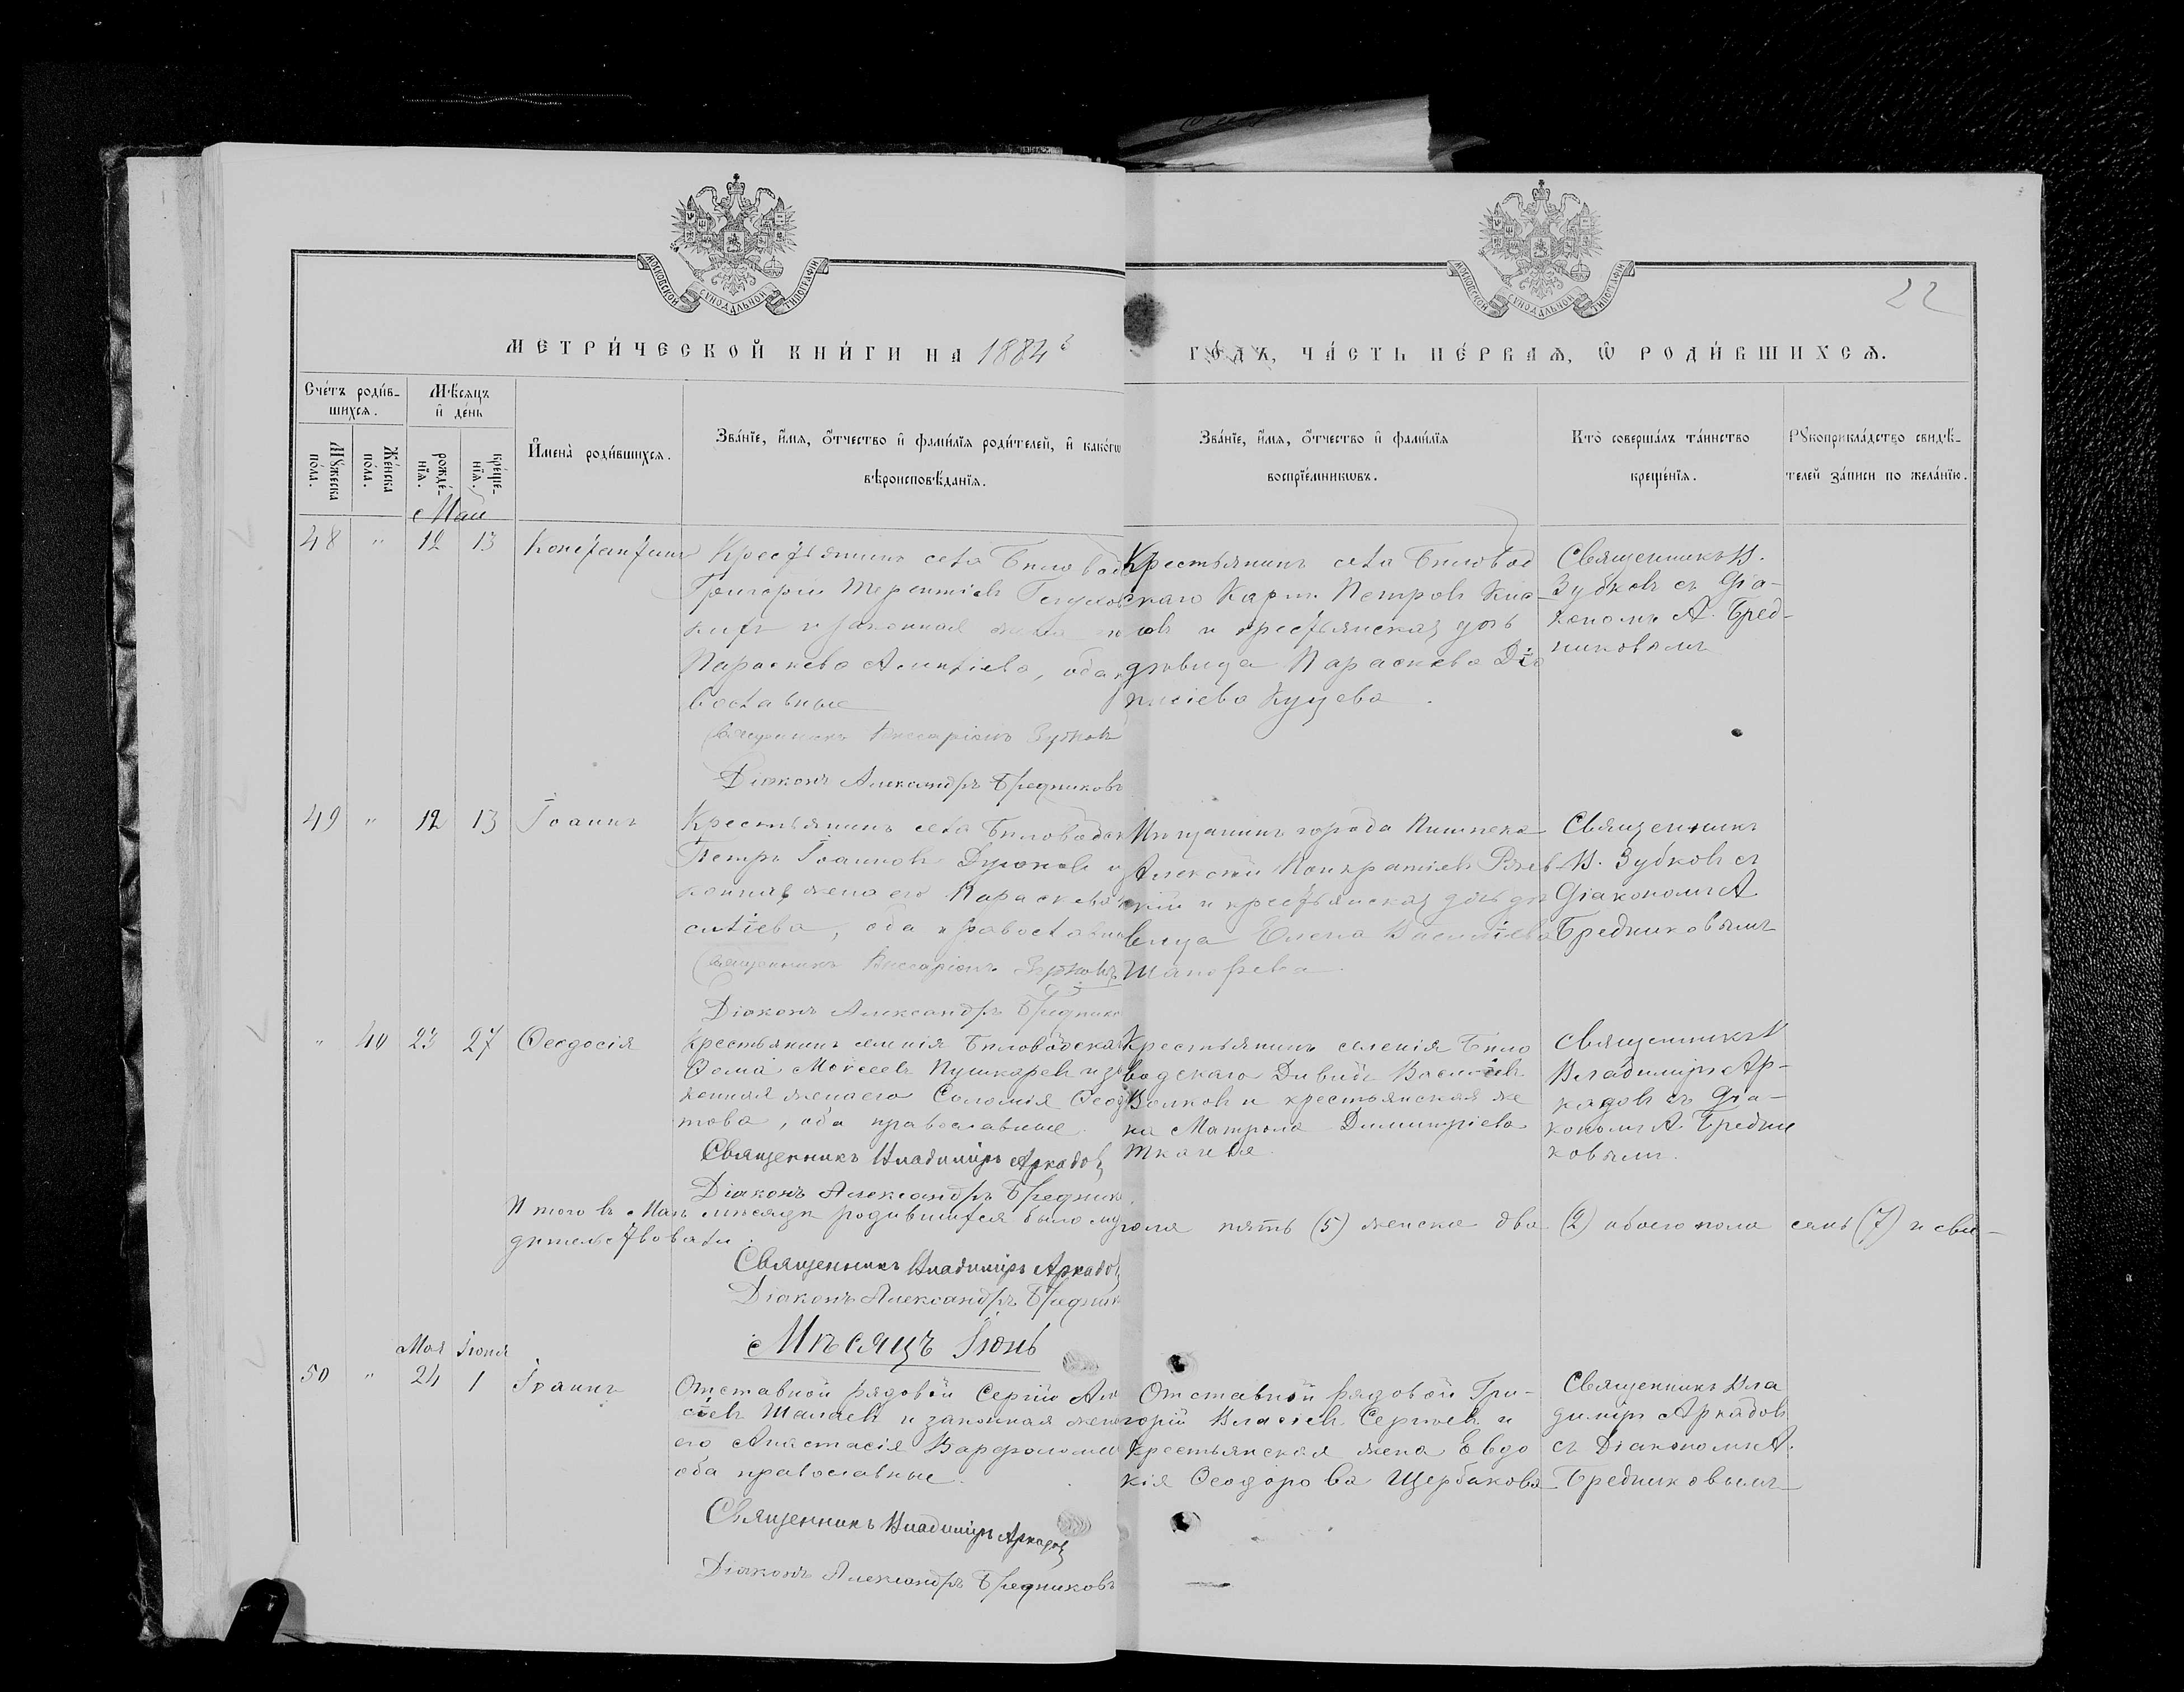 22
МОСКОВСКОЙ СѴНОДАЛЬНОЙ ТИПОГРАФІИ
МОСКОВСКОЙ СѴНОДАЛЬНОЙ ТИПОГРАФІИ
МЕТРИ́ЧЕСКОЙ КНИ́ГИ НА 1884 ГО́ДЪ, ЧА́СТЬ ПЕ́РВАѦ, Ѡ РОДИ́ВШИХСѦ.
Сче́тъ роди́в-
шихсѧ.
Мꙋжеска
по́ла.
Же́нска
по́ла.
Мѣ́сѧцъ
и҆ де́нь
рожде́-
нїѧ.
креще́-
нїѧ.
И҆мена̀ роди́вшихсѧ.
Зва́нїе, и҆́мѧ, ѻ҆́тчество и҆ фами́лїѧ роди́телей, и҆ како́гѡ
вѣроисповѣ́данїѧ.
Зва́нїе, и҆́мѧ, ѻ҆́тчество и҆ фами́лїѧ
воспрїе́мникѡвъ.
Кто̀ соверша́лъ та́инство
креще́нїѧ.
Рꙋкоприкла́дство свидѣ́-
телей за́писи по жела́нїю.
Маи
48 " 12 13 Константинъ
Крестьянинъ села Бѣловод
Григорій Терентіевъ
и законная жена
Параскева, оба
вославные
Священникъ Виссаріонъ Зубковъ
Діаконъ Александръ Бредниковъ
Крестьянинъ села Бѣловод
скаго Карпъ Петровъ Кис
ловъ и крестьянская дочь
дѣвица Параскева Діо
нисіева Куцева.
Священникъ В.
Зубковъ съ Діа-
кономъ А. Бред-
никовымъ
49 " 12 13 Іоаннъ
Крестьянинъ села Бѣловодск
Петръ Іоанновъ и за
конная жена его Параскева
оба православны
Священникъ Виссаріонъ Зубковъ
Діаконъ Александръ Бреднико
Мѣщанинъ города Пишпека
Алексѣй Панкратіевъ Ржев
скій и крестьянская дочь дѣ
вица Елена Василіева
Священникъ
В. Зубковъ съ
Діакономъ А
Бредниковымъ
" 40 23 27 Ѳеодосія
Крестьянинъ селенія Бѣловодскаг
Ѳома Моѵсеевъ Пушкаревъ и за
конная жена его Соломія Ѳеод
това, оба православные.
Священникъ Владиміръ Аркадовъ
Діаконъ Александръ Бредник
Крестьянинъ селенія Бѣло
водскаго Давидъ Василіевъ
Волковъ и крестьянская же
на Матрона Димитріева
Ткачева.
Священникъ
Владиміръ Ар-
кадовъ съ Діа-
кономъ А. Бредни
ковымъ.
Итого въ Маѣ мѣсяцѣ родившихся было муж пола пять (5) женска два (2) обоего пола семь (7) и сви-
дѣтельствовали:
Священникъ Владиміръ Аркадовъ
Діаконъ Александръ Бредник
Мѣсяцъ Іюнь
Мая Іюня
50 " 24 1 Іоаннъ
Отставной рядовой Сергій Але
сіевъ Шалаевъ и законная жена
его Анастасія Варѳоломее
оба православные.
Священникъ Владиміръ Аркадовъ
Діаконъ Александръ Бредниковъ
Отставной рядовой Гри-
горій Власіевъ Сергѣевъ и
Крестьянская жена Евдо
кія Ѳеодорова Щербакова
Священникъ Вла
диміръ Аркадовъ
съ Діакономъ А.
Бредниковымъ